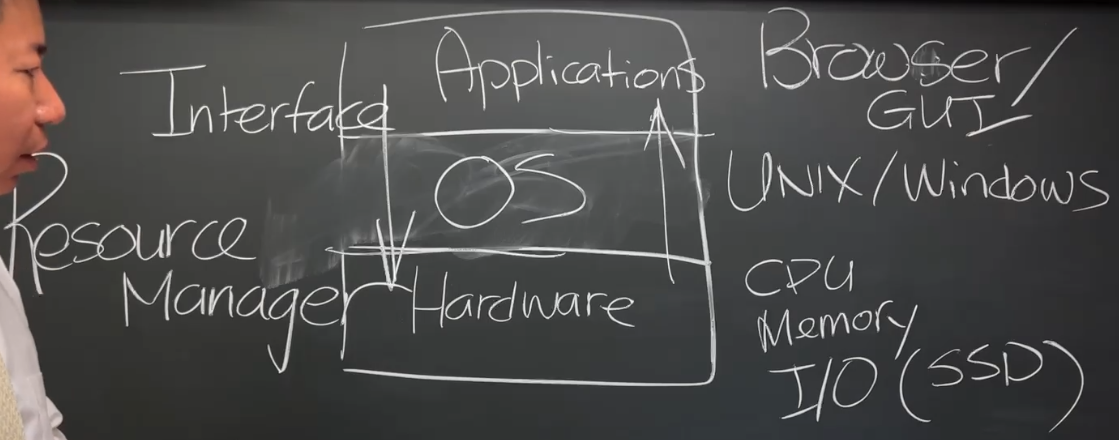 Interface
Resource
Manager
Applications
OS
Hardware
Browser/
GUI
UNIX/Windows
CPU
Memory
I/O (SSD)